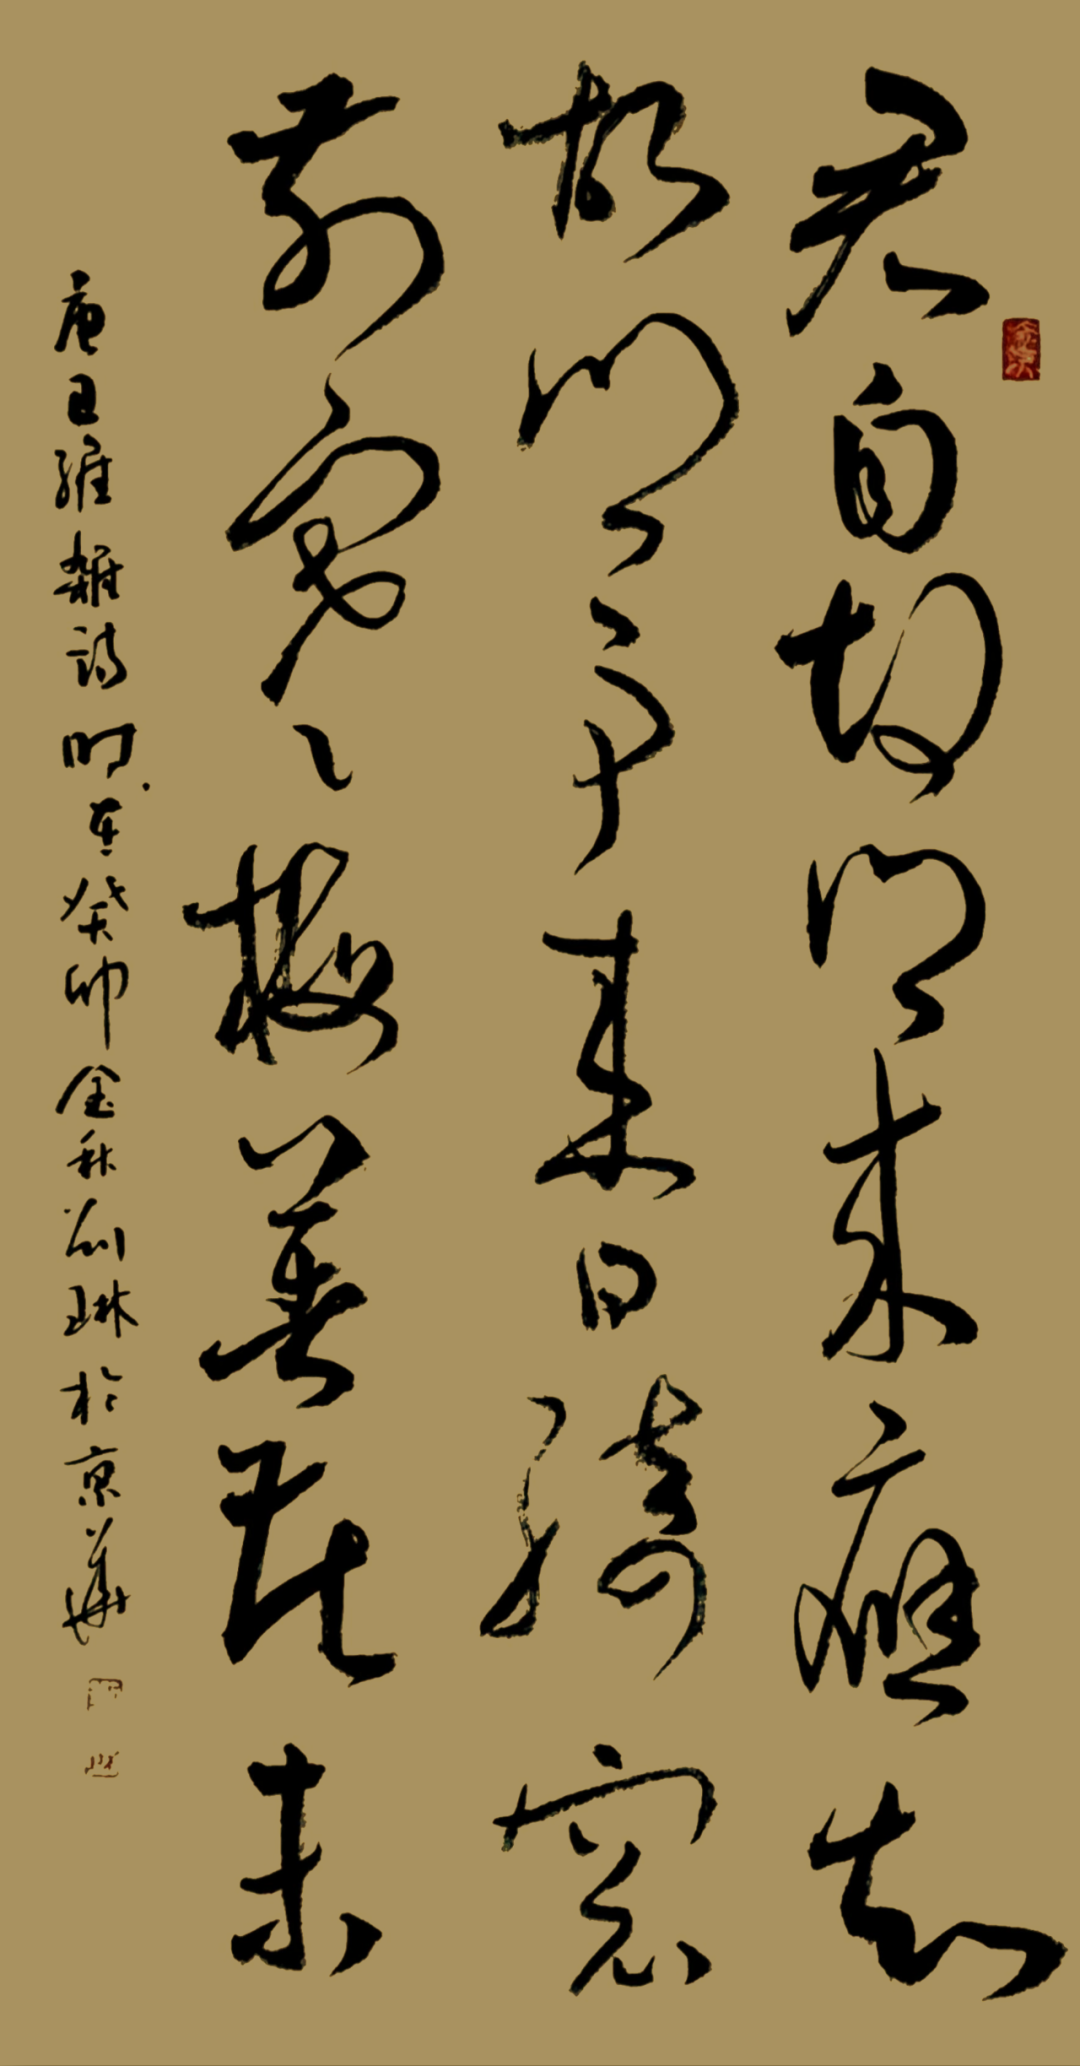 君自故鄉来應知
故鄉事来日綺窗
前寒梅著花未
唐王維雜詩時在癸卯金秋刘琳於京華